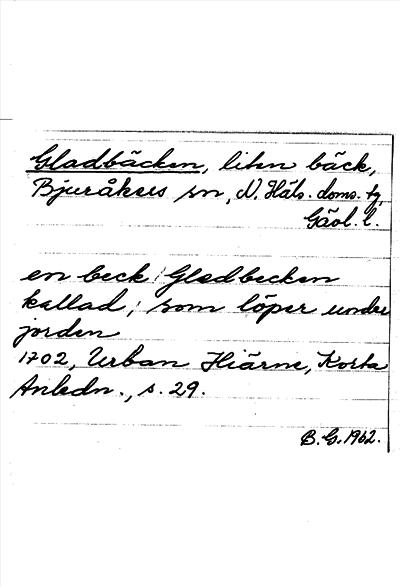 Gladbäcken, liten bäck,
Bjuråkers sn, N. Häls. doms. tg,
Gävl. l.
en beck / Gladbecken
kallad / som löper under
jorden
1702, Urban Hiärne, Korta
Anledn., s. 29.
B. G. 1962.